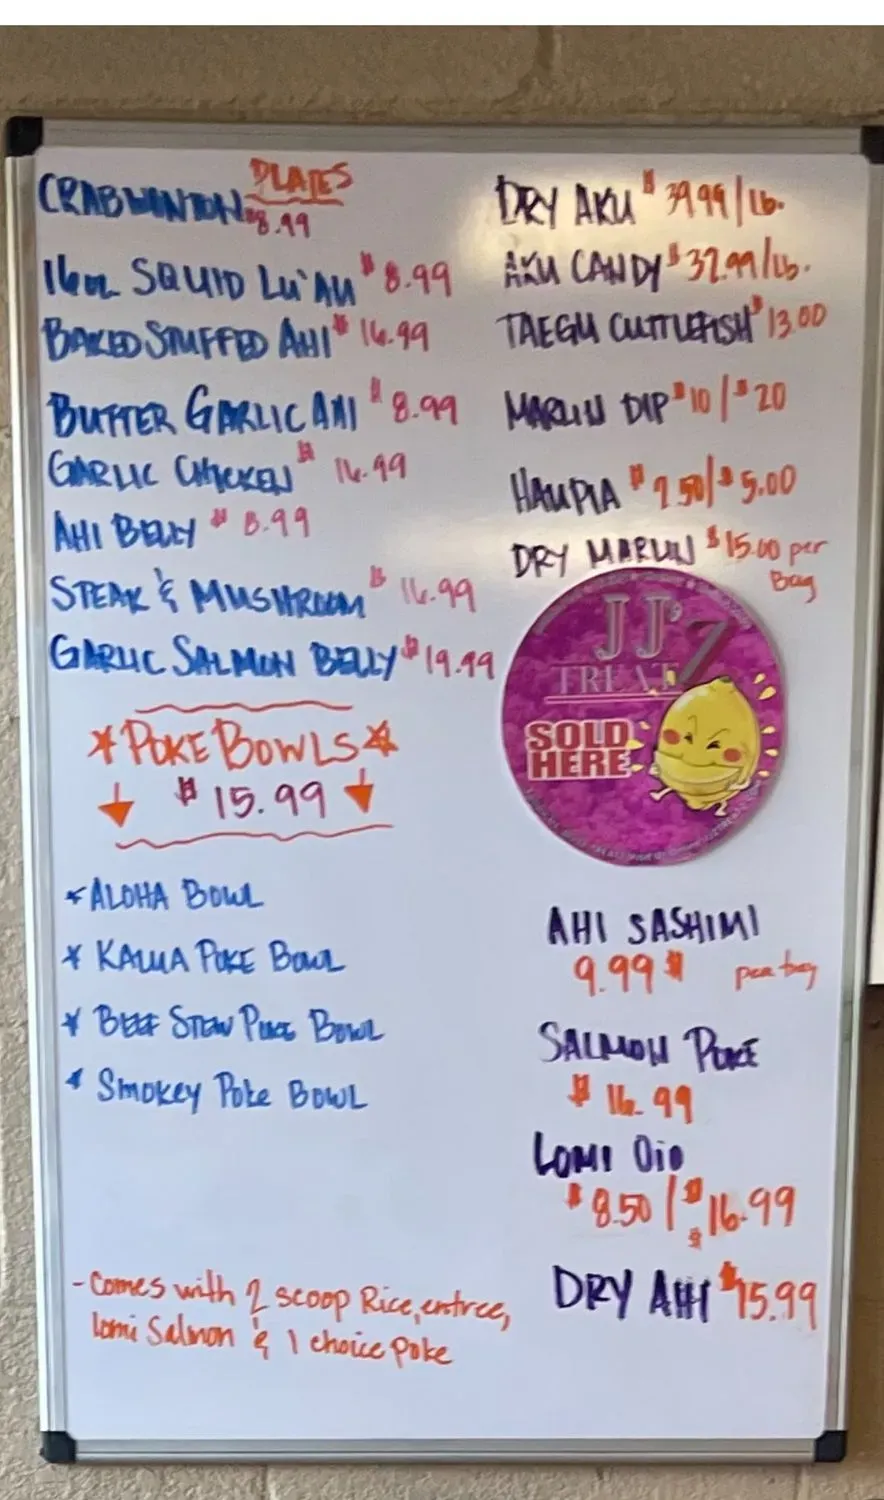 PLATES
CRABWONTON $8.99
16oz SQUID LU'AU $8.99
BAKED STUFFED AHI $16.99
BUTTER GARLIC AHI $8.99
GARLIC CHICKEN $16.99
AHI BELLY $8.99
STEAK & MUSHROOM $16.99
GARLIC SALMON BELLY $19.99
POKE BOWLS
$15.99
* ALOHA BOWL
* KALUA POKE BOWL
* BEEF STEW POKE BOWL
* SMOKEY POKE BOWL
- Comes with 2 scoop Rice, entree,
lomi Salmon & 1 choice poke
DRY AKU $39.99/lb.
AKU CANDY $37.99/lb.
TAEGU CUTTLEFISH $13.00
MARLIN DIP $10/$20
HAUPIA $2.50/$5.00
DRY MARLIN $15.00 per
Bag
JJ'Z
TREATZ
SOLD
HERE
AHI SASHIMI
9.99$ per tray
SALMON POKE
$16.99
LOMI OiO
$8.50/$16.99
DRY AHI $15.99